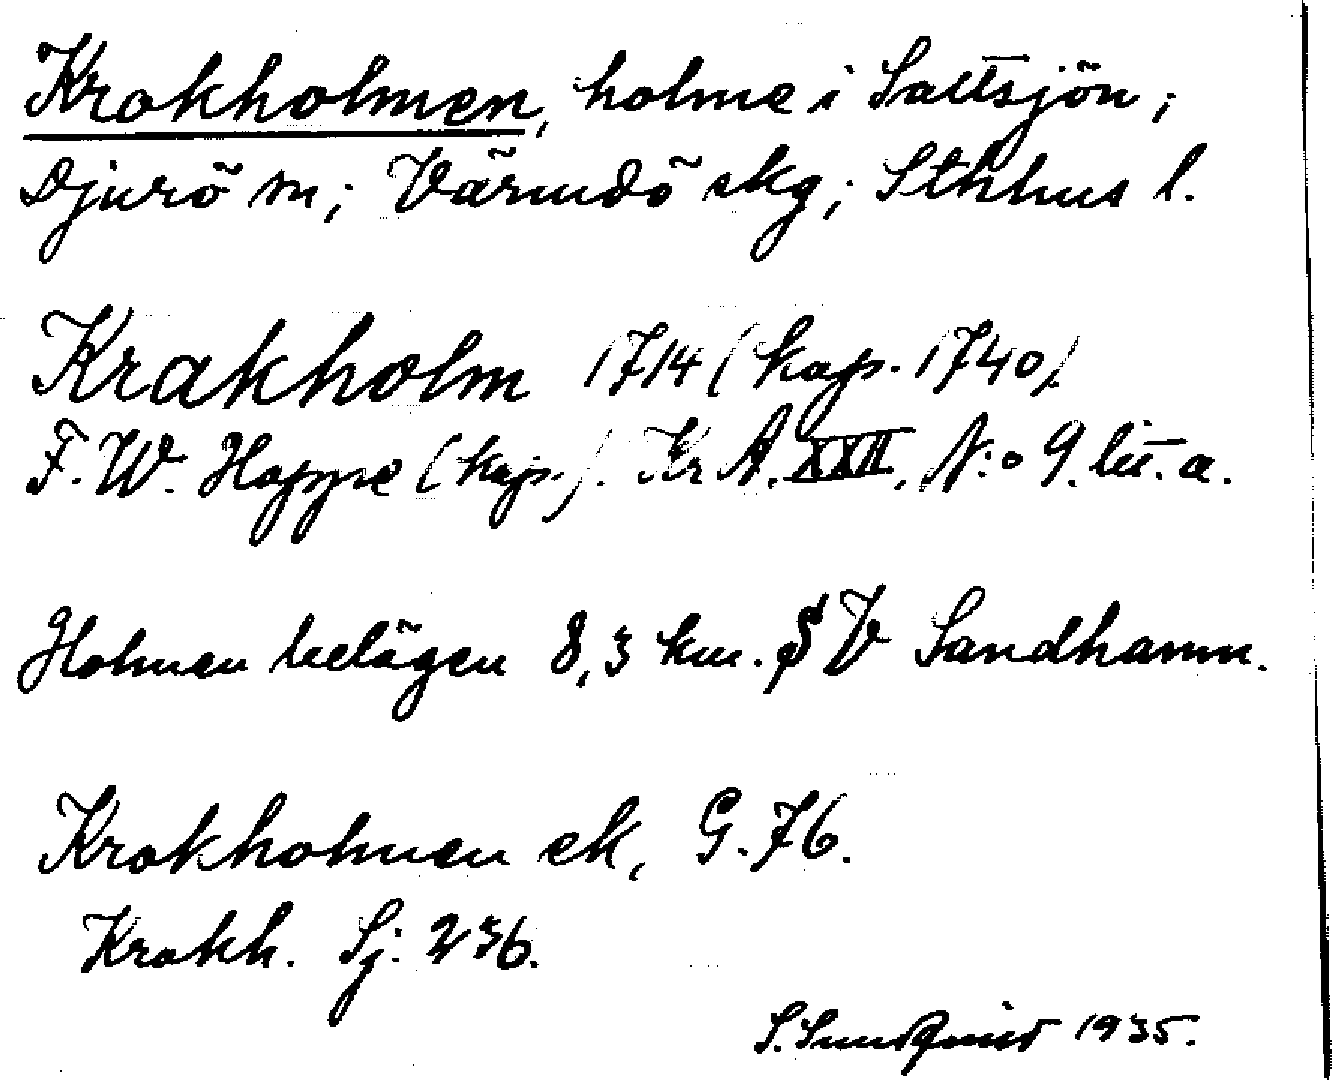 Krokholmen, holme i Saltsjön;
Djurö sn; Värmdö skg; Sthlms l.
Krakholm 1714 (kop. 1740).
F. W. Hoppe (kop.). Kr A. XXII, N:o 9. litt. a.
Holmen belägen 8,3 km. SV Sandhamn.
Krokholmen ek, G. 76.
Krokh. Sj. 236.
S. Sundquist 1935.